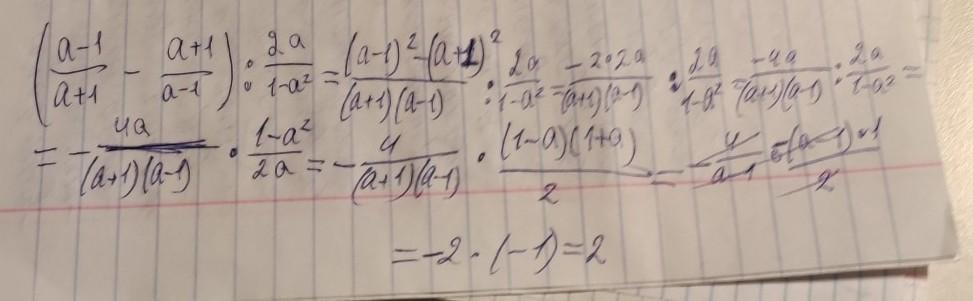 (a-1/a+1 - a+1/a-1) : 2a/1-a² = (a-1)²-(a+1)²/(a+1)(a-1) : 2a/1-a² = -2·2a/(a+1)(a-1) : 2a/1-a² = -4a/(a+1)(a-1) : 2a/1-a² =
= - 4a/(a+1)(a-1) · 1-a²/2a = - 4/(a+1)(a-1) · (1-a)(1+a)/2 = - 4/a-1 · -(a-1)·1/2
= -2 · (-1) = 2